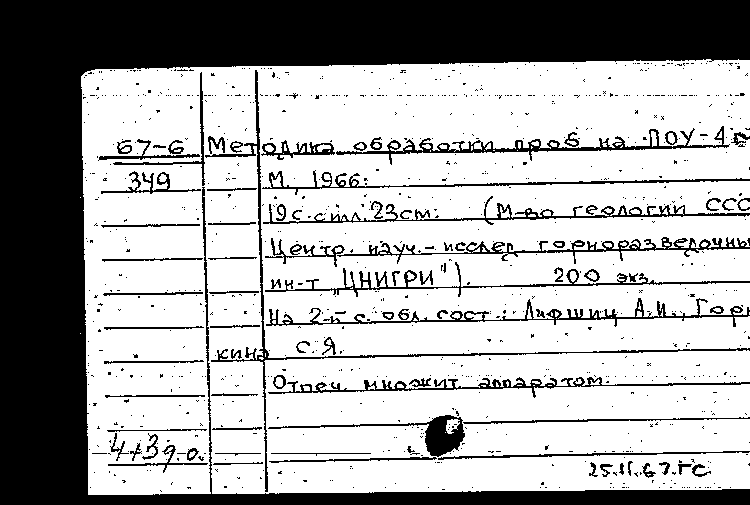 67-6 Методика обработки проб на ПОУ-4
349 М., 1966.
19с. с илл. 23см. (М-во геологии ССС
Центр. науч.-исслед. горноразведочны
ин-т "ЦНИГРИ"). 200 экз.
На 2-й с. обл. сост.: Лифшиц А.И., Гор
кина С.Я.
Отпеч. множит. аппаратом.
4+3 д.о.
25.II.67.ГС